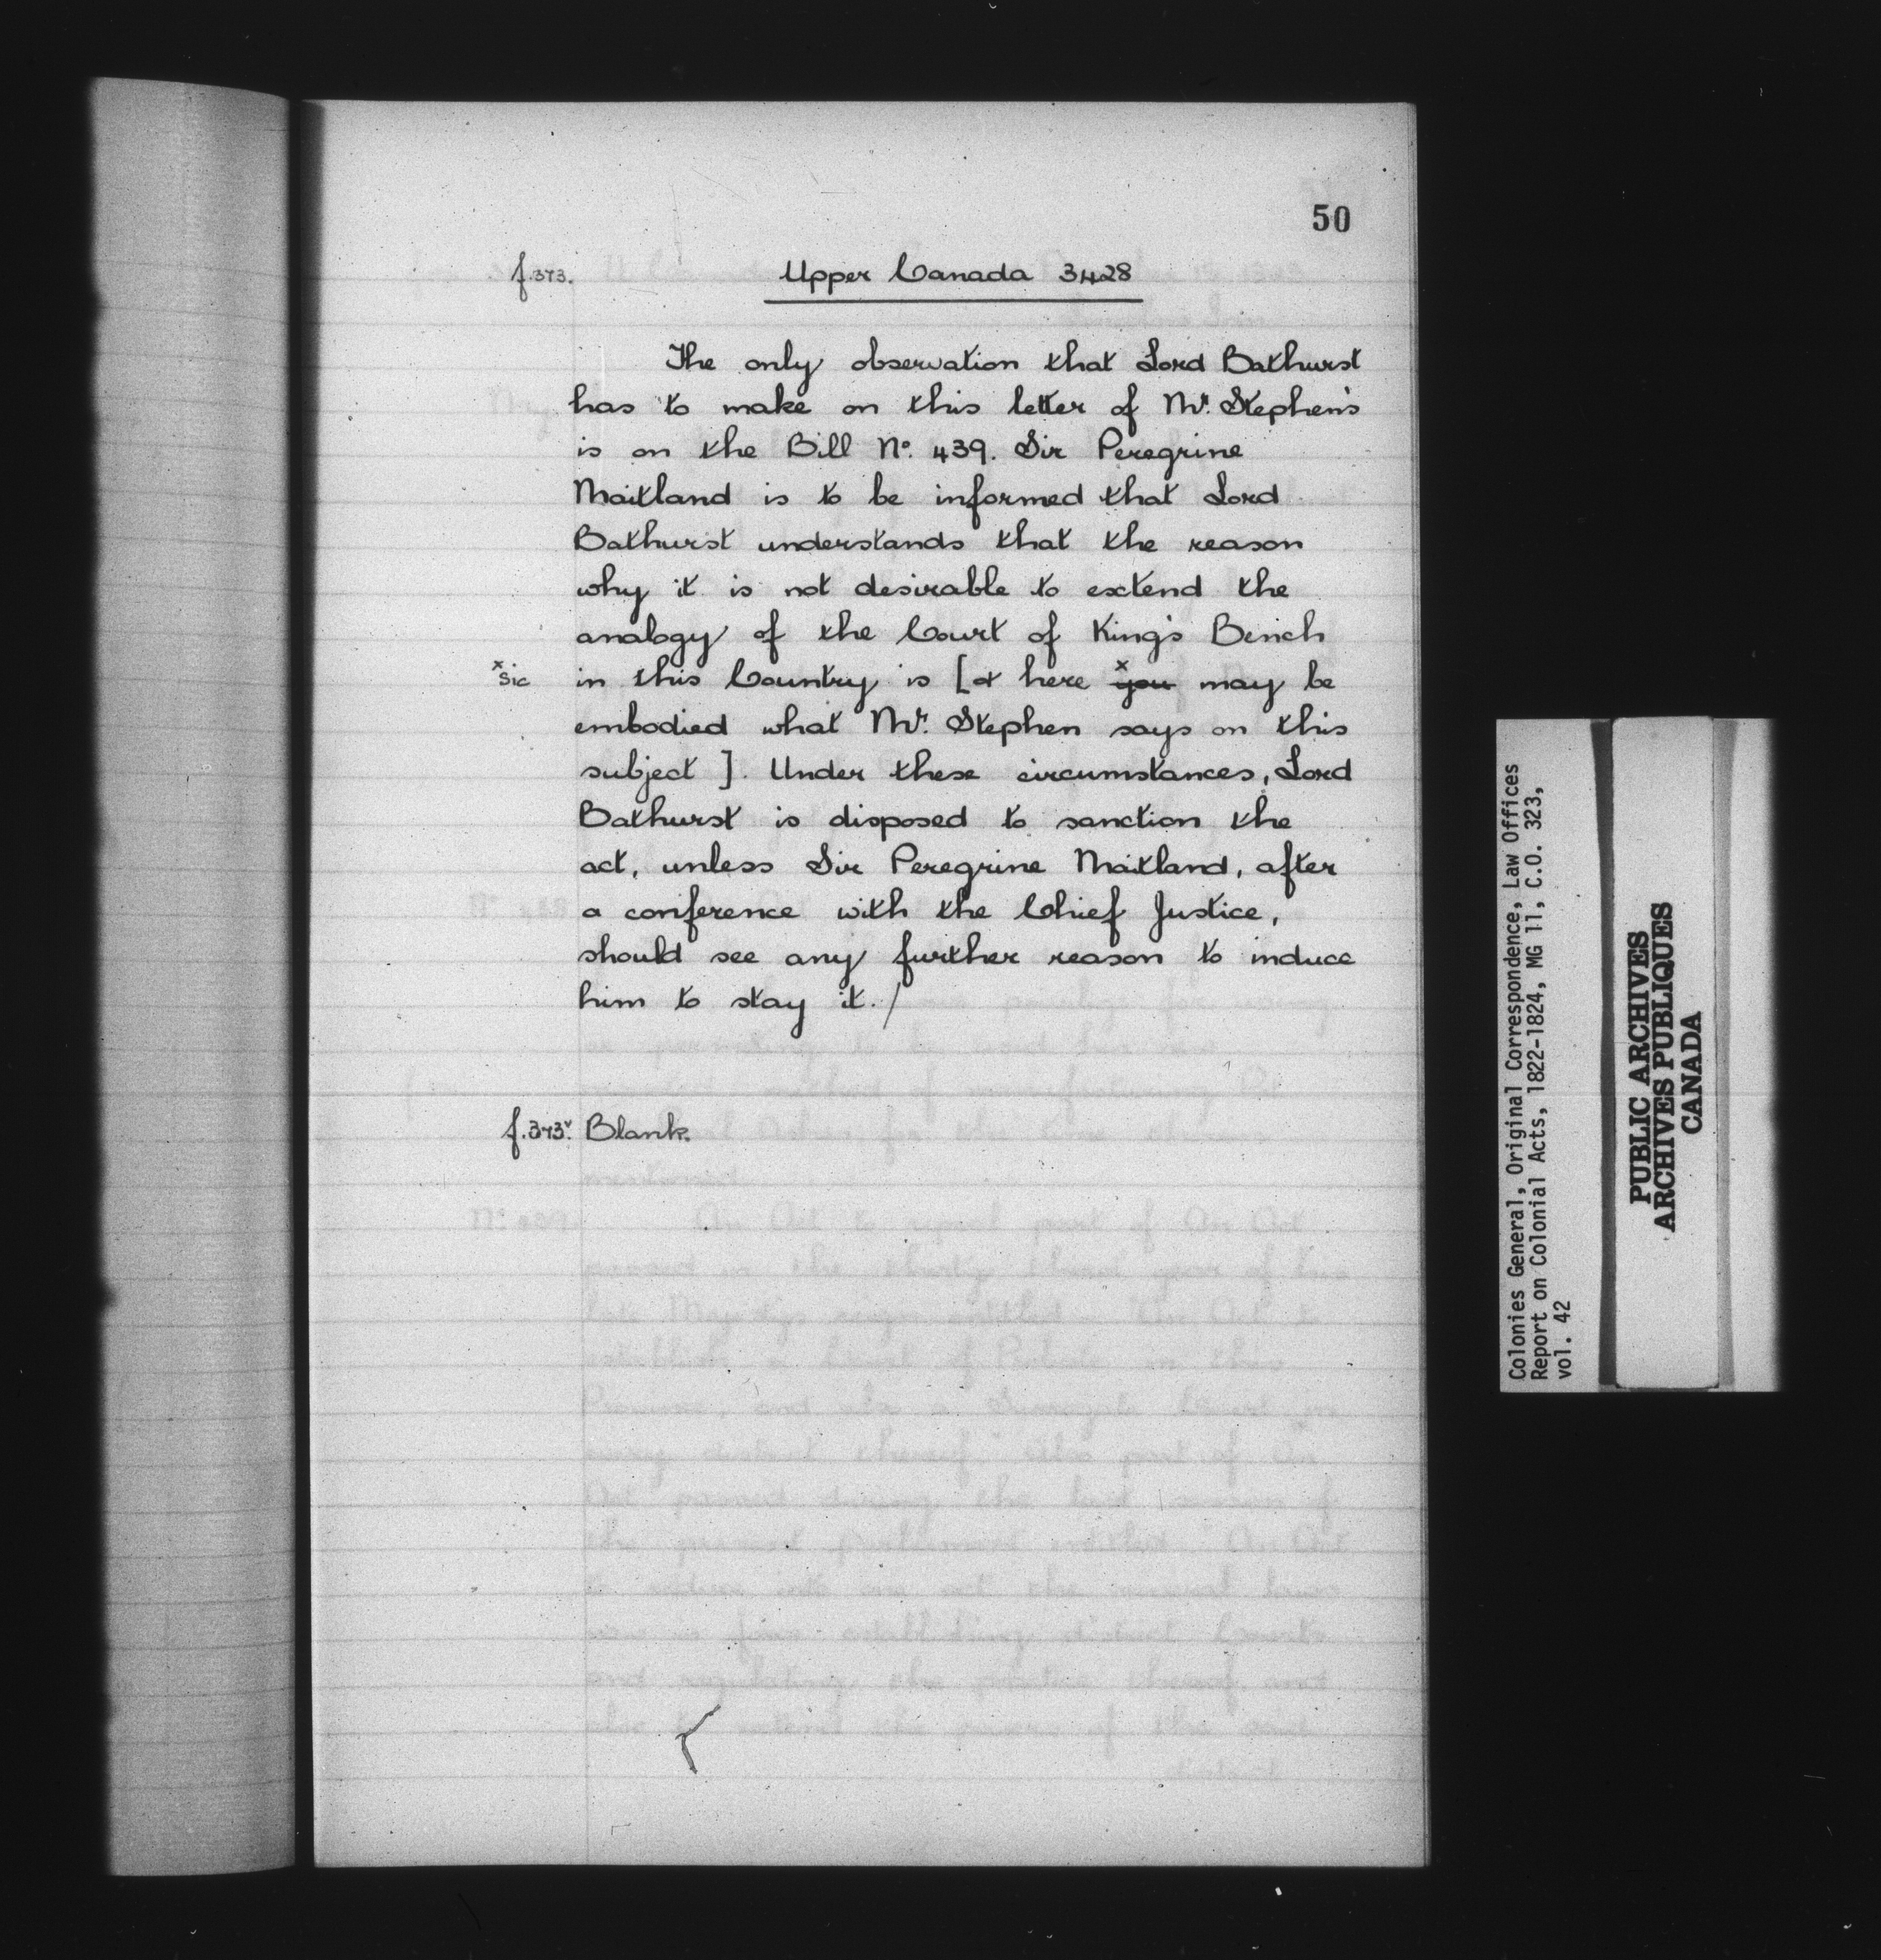 50
f.373. Upper Canada 3428
The only observation that Lord Bathurst
has to make on this letter of Mr. Stephen's
is on the Bill No. 439. Sir Peregrine
Maitland is to be informed that Lord
Bathurst understands that the reason
why it is not desirable to extend the
analogy of the Court of King's Bench
x sic in this Country is [& here x you may be
embodied what Mr. Stephen says on this
subject]. Under these circumstances, Lord
Bathurst is disposed to sanction the
act, unless Sir Peregrine Maitland, after
a conference with the Chief Justice,
should see any further reason to induce
him to stay it./
f.373v. Blank.
Colonies General, Original Correspondence, Law Offices
Report on Colonial Acts, 1822-1824, MG 11, C.O. 323,
vol. 42
PUBLIC ARCHIVES
ARCHIVES PUBLIQUES
CANADA